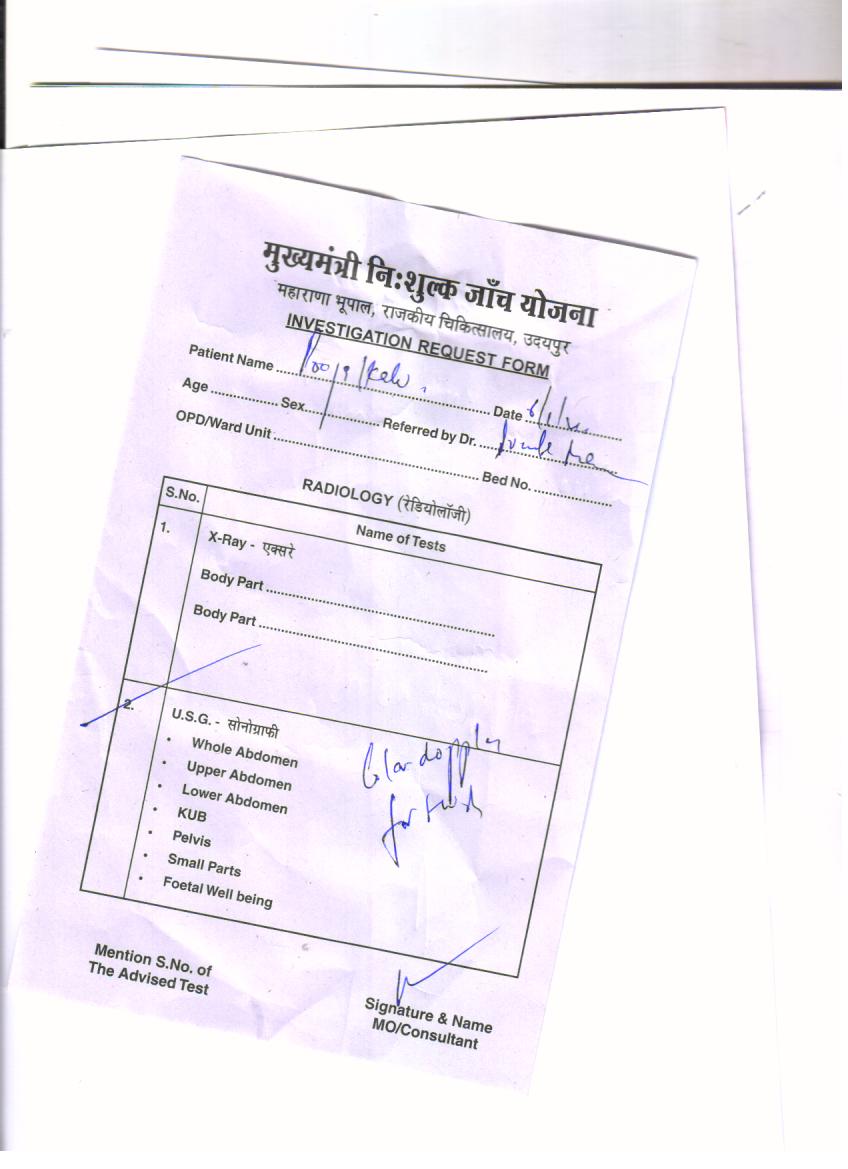 मुख्यमंत्री नि:शुल्क जाँच योजना
महाराणा भूपाल, राजकीय चिकित्सालय, उदयपुर
INVESTIGATION REQUEST FORM
Patient Name ........ Date ........
Age ........ Sex ........ Referred by Dr. ........
OPD/Ward Unit ........ Bed No. ........
RADIOLOGY (रेडियोलॉजी)
S.No. Name of Tests
1. X-Ray - एक्सरे
Body Part ........
Body Part ........
2. U.S.G. - सोनोग्राफी
• Whole Abdomen
• Upper Abdomen
• Lower Abdomen
• KUB
• Pelvis
• Small Parts
• Foetal Well being
for
Mention S.No. of
The Advised Test
Signature & Name
MO/Consultant